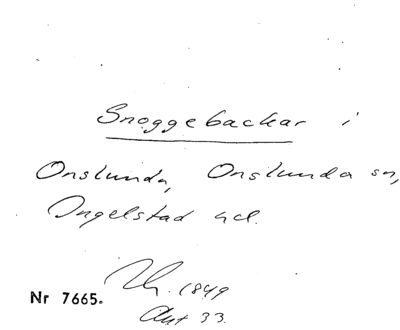 Snoggebackar i
Onslunda, Onslunda sn,
Ingelstad hd.
1849
Nr 7665.
33.